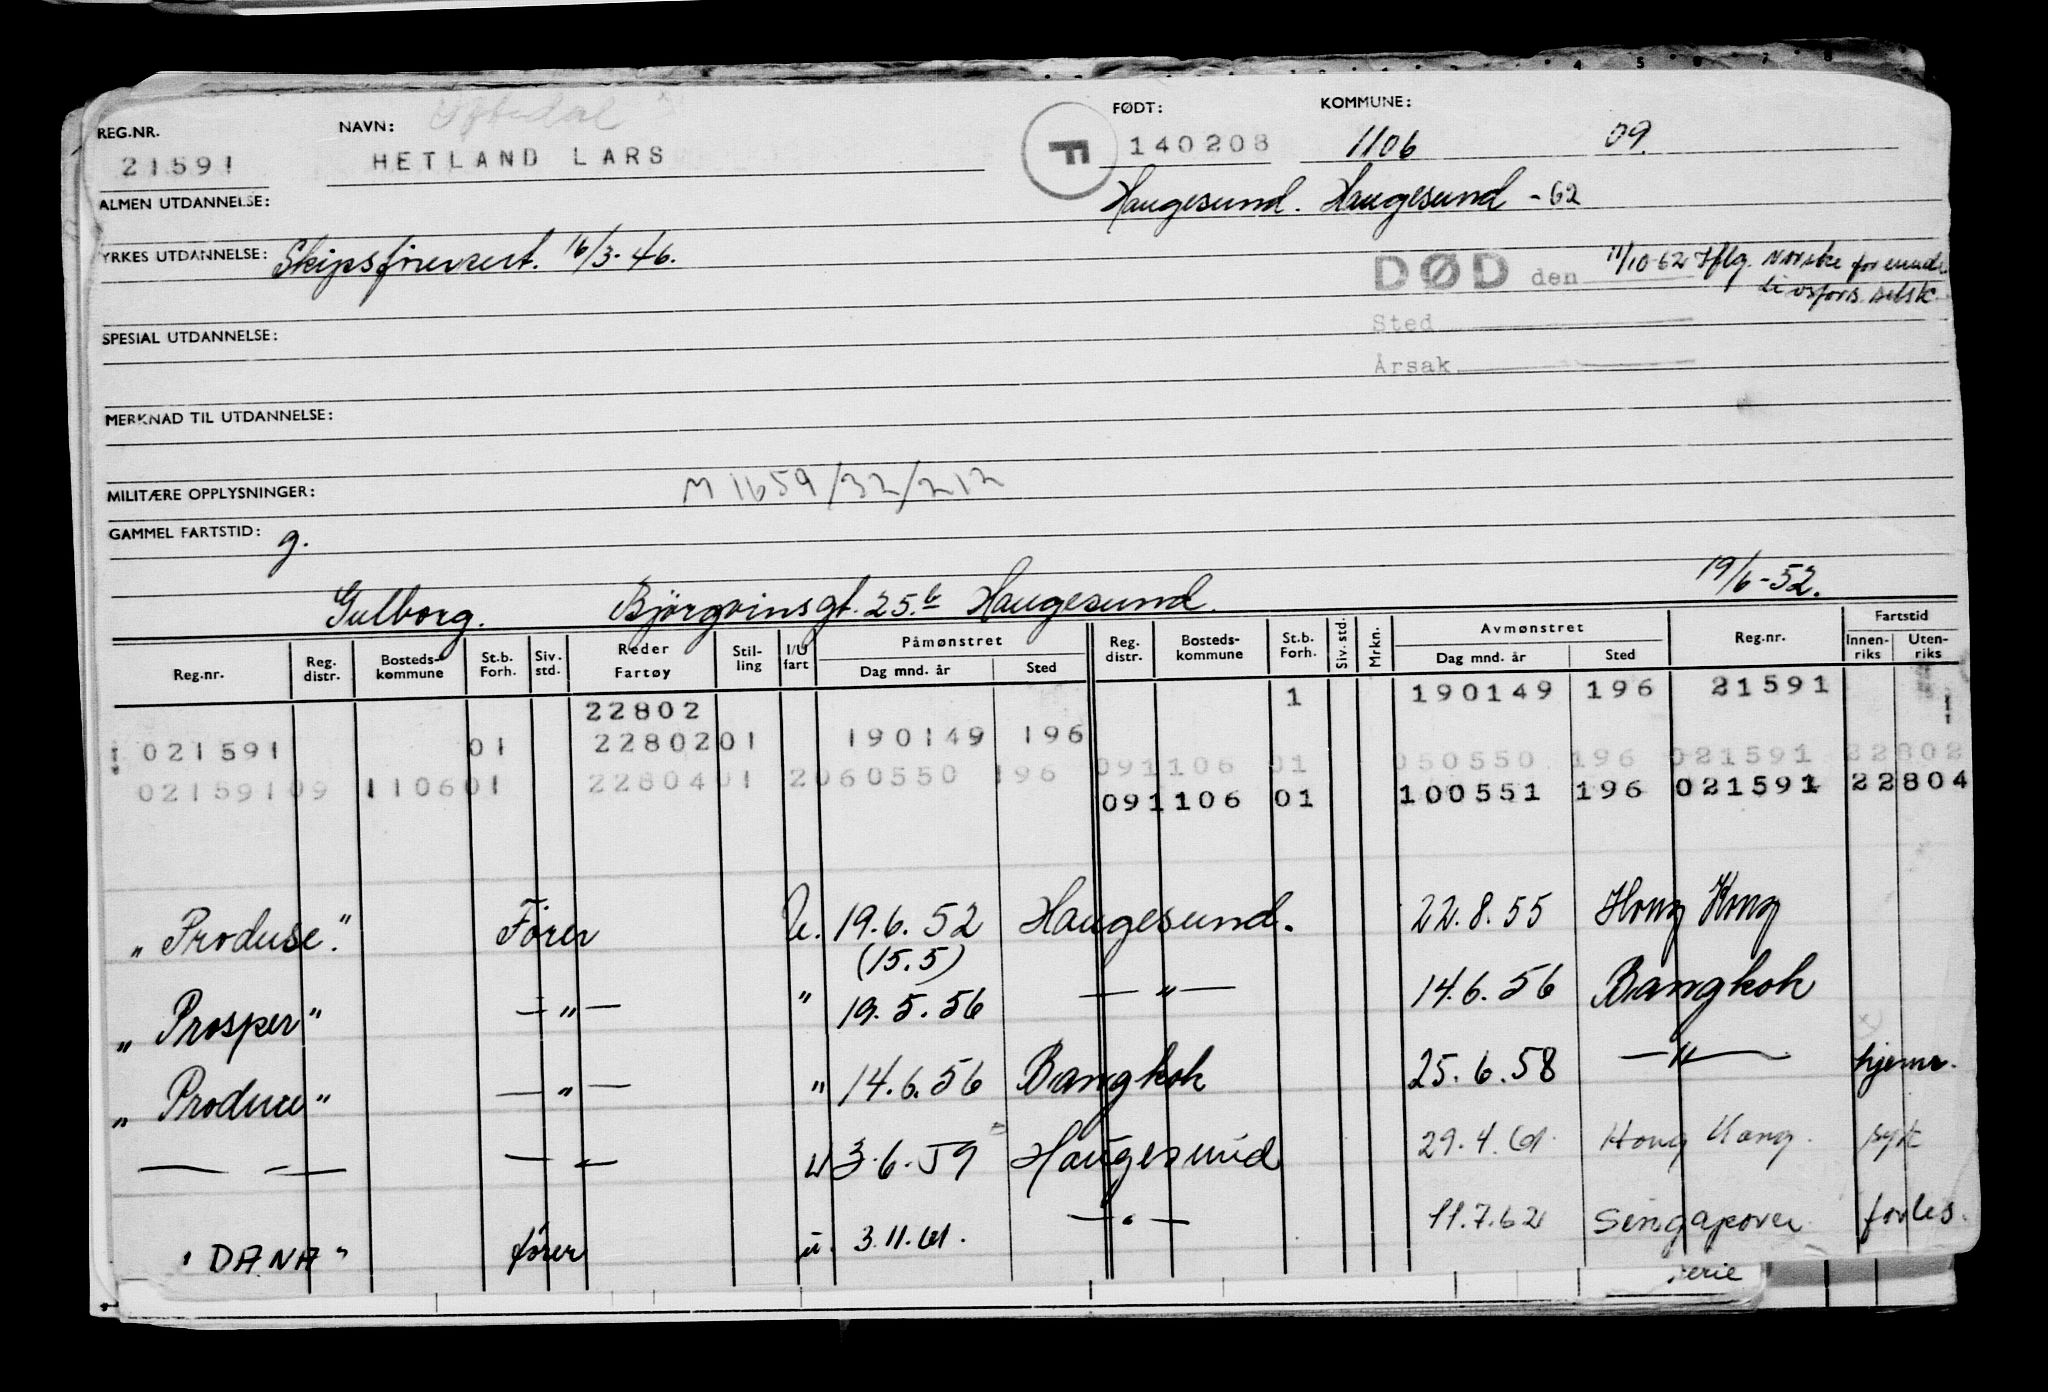 REG.NR. NAVN: FØDT: KOMMUNE:
21591 HETLAND LARS F 140208 1106 09.
ALMEN UTDANNELSE: Haugesund. Haugesund - 62
YRKES UTDANNELSE: Skipsförersert. 16/3-46.
DØD den 11/10-62 Iflg. Norske forenede
livsfors. selsk.
Sted
Årsak
SPESIAL UTDANNELSE:
MERKNAD TIL UTDANNELSE:
MILITÆRE OPPLYSNINGER: M 1659/32/212
GAMMEL FARTSTID: g.
Gulborg. Bjørgvinsgt. 25.b Haugesund. 19/6-52.
Reg.nr. Reg. distr. Bosteds-kommune St.b. Forh. Siv. std. Reder Fartøy Stil-ling I/U fart Påmønstret Dag mnd. år Sted Reg. distr. Bosteds-kommune St.b. Forh. Siv. std. Mrkn. Avmønstret Dag mnd. år Sted Reg.nr. Fartstid Innen-riks Uten-riks
22802 1 190149 196 21591
021591 01 2280201 190149 196 091106 01 050550 196 021591 22802
02159109 110601 2280401 2060550 196 091106 01 100551 196 021591 22804
„Produse." Förer U. 19.6.52 Haugesund. 22.8.55 Hong Kong
(15.5)
„Prosper" — " — " 19.5.56 — " — 14.6.56 Bangkok
„Produce" — " — " 14.6.56 Bangkok 25.6.58 — " — hjemr.
— — — — " — u 3.6.59 Haugesund 29.4.61. Hong Kong. syk
"DANA" fører u. 3.11.61. — " — 11.7.62 Singapore forles.
serie